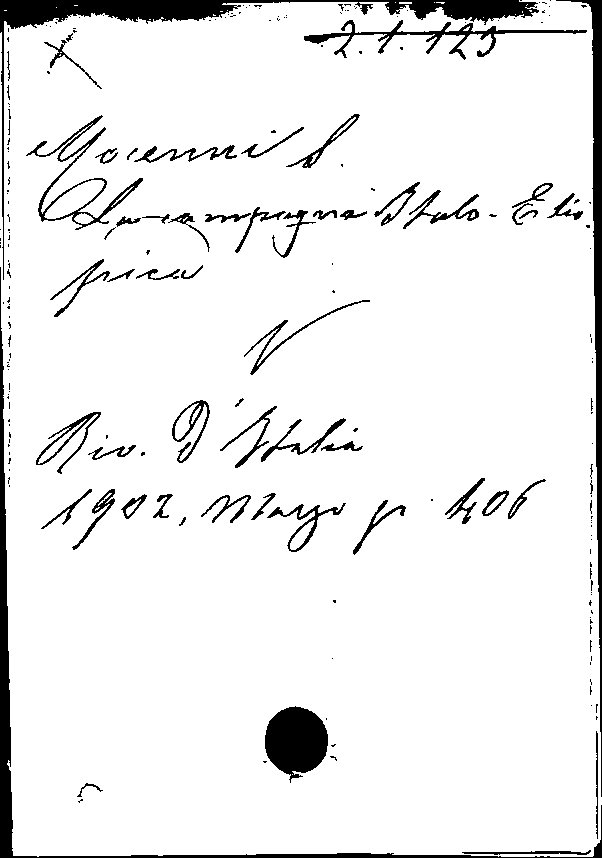 2.1.123
Mocenni S.
La campagna Italo-Etio-
pica
V
Riv. D'Italia
1902, Marzo p. 406